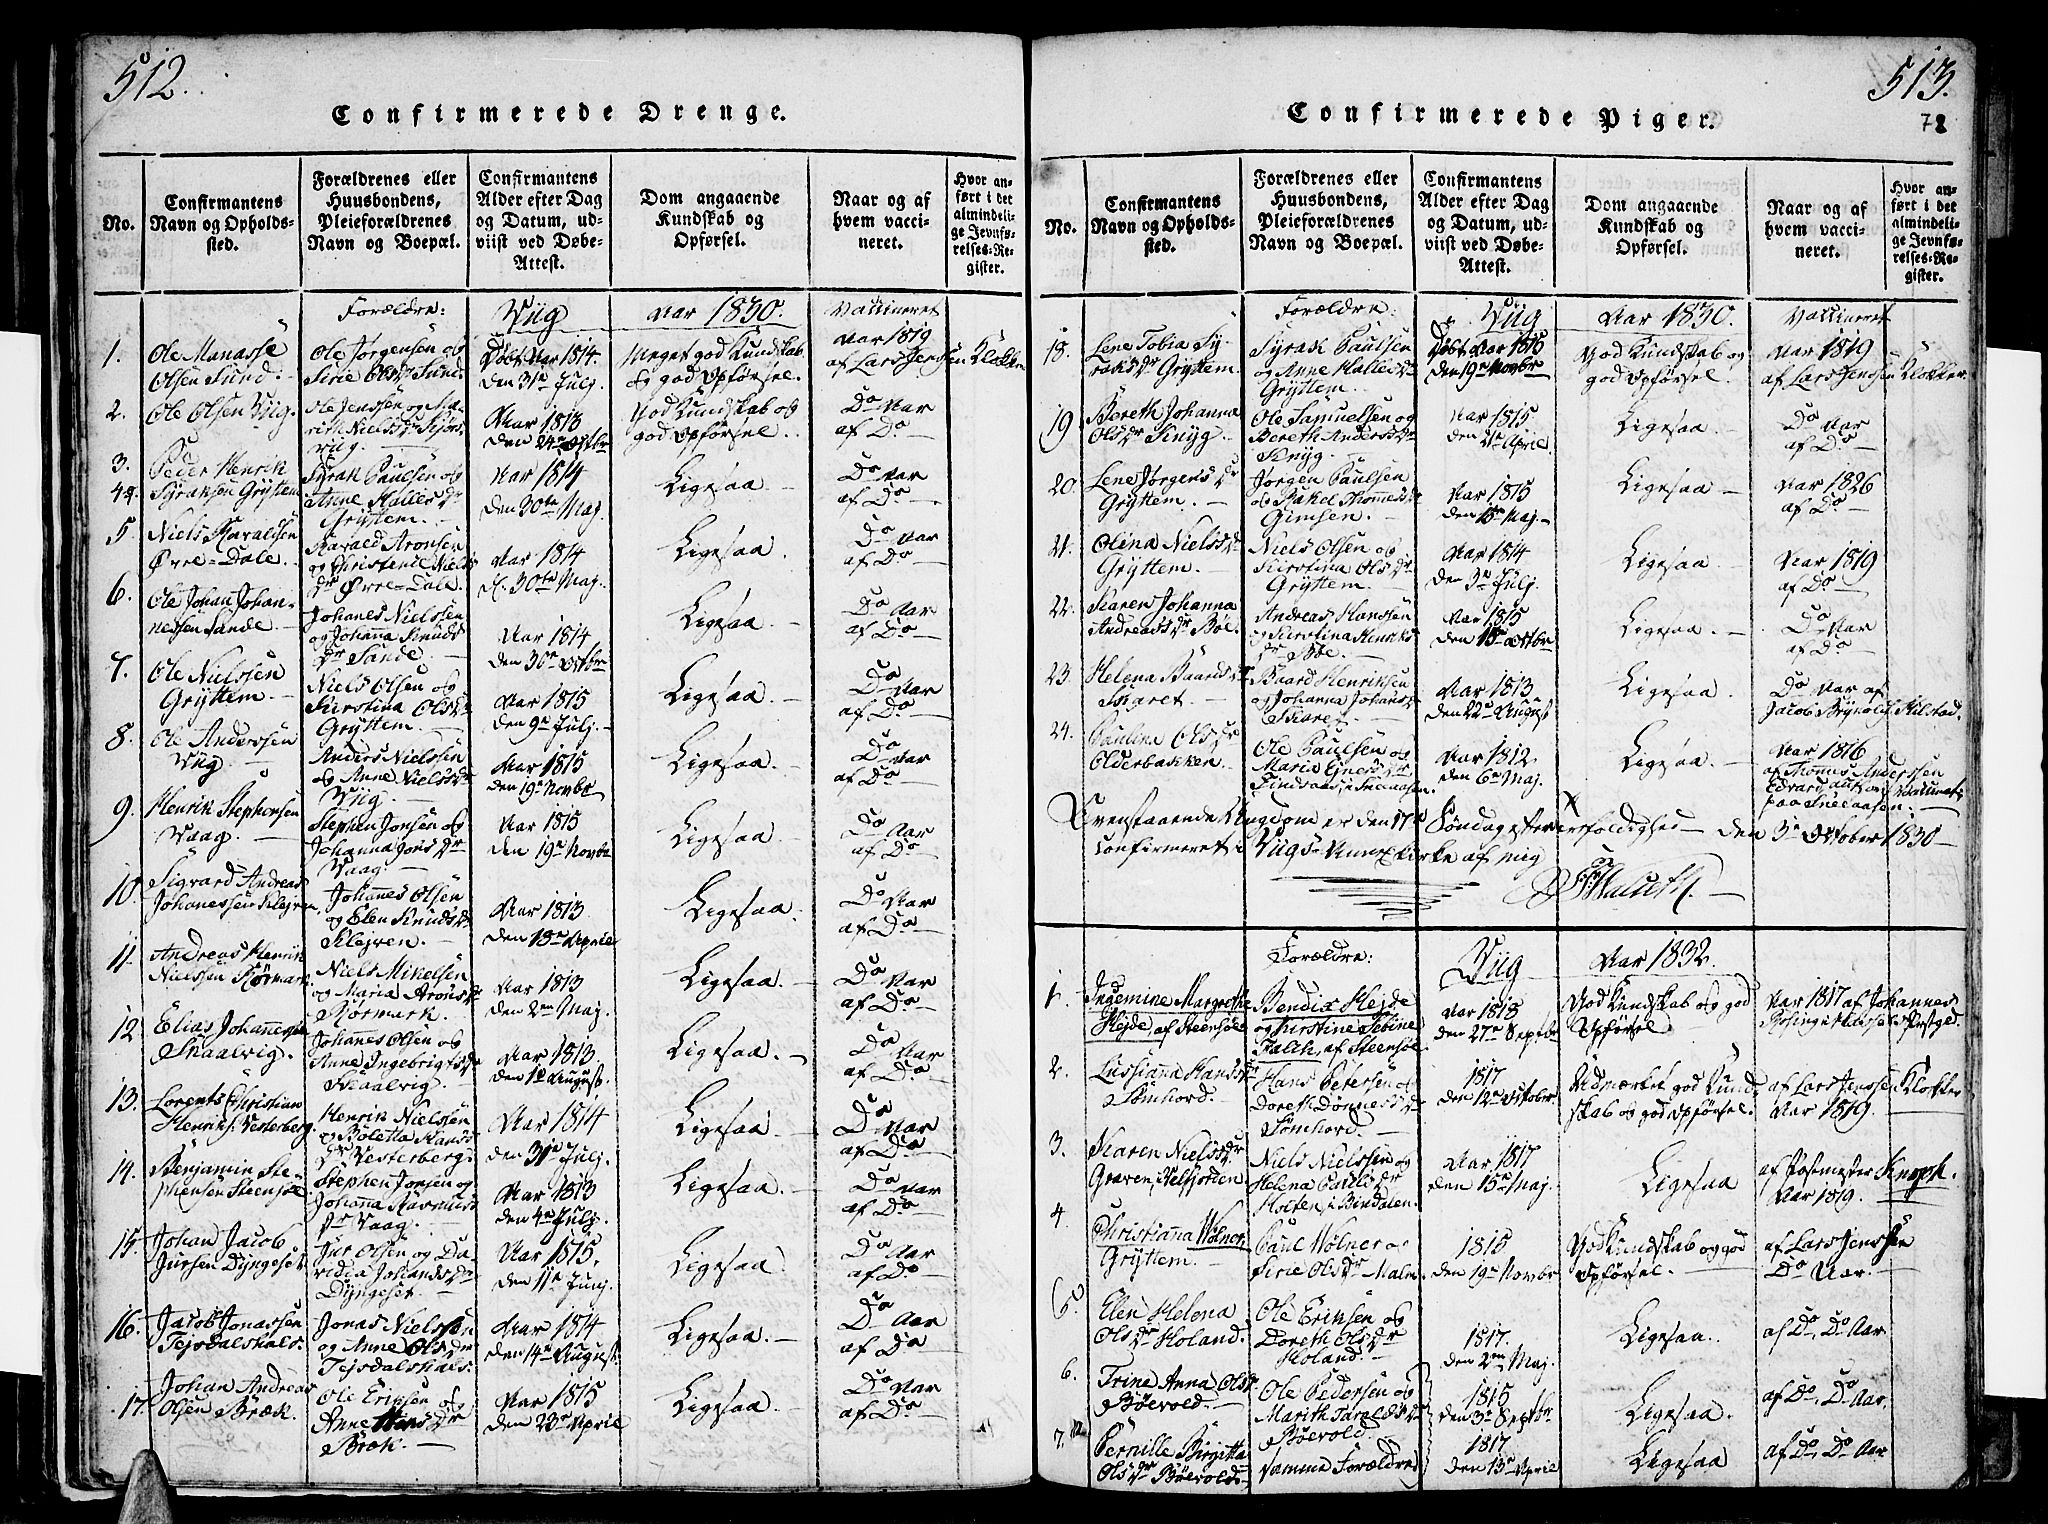 512.
Confirmerede Drenge.
No.
Confirmantens
Navn og Opholds-
sted.
Forældrenes eller
Huusbondens,
Pleieforældrenes
Navn og Boepæl.
Confirmantens
Alder efter Dag
og Datum, ud-
viist ved Døbe-
Attest.
Dom angaaende
Kundskab og
Opførsel.
Naar og af
hvem vacci-
neret.
Hvor an-
ført i det
almindeli-
ge Jevnfø-
relses-Re-
gister.
Forældre: Viig Aar 1830. Vaccineret
1.
Ole Manasse
Olsen Sund.
Ole Jörgensen og
Sirie Olsdr Sund.
Döbt Aar 1814.
den 31te Julj.
Meget god Kundskab
og god Opförsel.
Aar 1819
af Lars Jensen Klokker
2.
Ole Olsen Viig.
Ole Jenssen og
Nielsdr
Viig.
Aar 1813
den 24de Octbr
God Kundskab og
god Opförsel.
Do Aar
af Do
3.
4.
Peder Henrik
Syraksen Gryttem
Syrak Paulsen og
Anne Hallesdr
Gryttem.
Aar 1814
den 30te Maj.
Ligesaa
Do Aar
af Do
5.
Niels Haraldsen
Övre-Dale.
Harald Aronsen
og Christence Niels
dr Övre-Dale.
Aar 1814
d. 30te Maj.
Ligesaa
Do Aar
af Do
6.
Ole Johan Johan-
nessen Sande.
Johanes Nielssen
og Johanna Knuds
dr Sande.
Aar 1814
den 30te Octbr
Ligesaa
Do Aar
af Do
7.
Ole Nielssen
Gryttem.
Niels Olsen og
Kirstina Olsdr
Gryttem.
Aar 1815
den 9de Julj.
Ligesaa
Do Aar
af Do
8.
Ole Anderssen
Viig
Anders Nielssen
og Anne Nielsdr
Viig.
Aar 1815
den 19de Novbr
Ligesaa
Do Aar
af Do
9.
Henrik Stephensen
Vaag.
Stephen Jonsen og
Johanna Jonsdr
Vaag.
Aar 1815
den 19de Novbr
Ligesaa
Do Aar
af Do
10.
Sivard Andreas
Johanessen Klejven.
Johannes Olsen
og Elen Knudsdr
Klejven.
Aar 1813
den 18de April
Ligesaa
Do Aar
af Do
11.
Andreas Henrik
Nielssen
Niels Mikelsen
og Maria Aronsdr
Aar 1813
den 2den Maj.
Ligesaa
Do Aar
af Do
12.
Elias Johannessen
Skaalvig.
Johannes Olsen og
Anne Ingebrigtsdr
Skaalvig.
Aar 1813.
den 1ste August.
Ligesaa
Do Aar
af Do
13.
Lorents Christian
Henriks. Vesterberg.
Henrik Nielssen
og Boletta Hans
dr Vesterberg.
Aar 1814
den 31te Julj.
Ligesaa
Do Aar
af Do
14.
Benjamin Ste-
phensen Steensöe
Stephen Jonsen og
Johanna Rasmus
dr Vaag.
Aar 1813
den 4de Julj.
Ligesaa
Do Aar
af Do
15.
Johan Jacob
Jursen Dyngeset
Jur Olsen og
Johansdr
Dyngeset.
Aar 1815.
den 11te Junj.
Ligesaa
Do Aar
af Do
16.
Jacob Jonassen
Tejsdalshals.
Jonas Nielssen
og Anne Olsdr
Tejsdalshals.
Aar 1814
den 14de August
Ligesaa.
Do Aar
af Do
17.
Johan Andreas
Olsen Bræk.
Ole Eriksen og
Anne
Bræk.
Aar 1815
den 23de April
Ligesaa
Do Aar
af Do
513.
78
Confirmerede Piger.
No.
Confirmantens
Navn og Opholds-
sted.
Forældrenes eller
Huusbondens,
Pleieforældrenes
Navn og Boepæl.
Confirmantens
Alder efter Dag
og Datum, ud-
viist ved Døbe-
Attest.
Dom angaaende
Kundskab og
Opførsel.
Naar og af
hvem vacci-
neret.
Hvor an-
ført i det
almindeli-
ge Jevnfø-
relses-Re-
gister.
Forældre: Viig Aar 1830. Vaccineret
18.
Lene Tobia Sy-
raksdr Gryttem.
Syrak Paulsen
og Anne Hallesdr
Gryttem.
Döbt Aar 1815
den 19de Novbr
God Kundskab og
god Opförsel.
Aar 1819
af Lars Jenssen Klokker.
19.
Bereth Johanna
Olsdr Knyg.
Ole Samuelsen og
Bereth Andersdr
Knyg.
Aar 1815
den 21de April.
Ligesaa
Do Aar
af Do
20.
Lene Jörgensdr
Gryttem.
Jörgen Paulsen
og Rakel Thommesdr
Gimsen.
Aar 1815
den 15de Maj.
Ligesaa
Aar 1826
af Do
21.
Olina Nielsdr
Gryttem.
Niels Olsen og
Kirstina Olsdr
Gryttem.
Aar 1814
den 3de Julj.
Ligesaa
Aar 1819
af Do
22.
Karen Johanna
Andreasdr Böe.
Andreas Hanssen
og Kirstina Henriks
dr Böe.
Aar 1815
den 15de Octbr
Ligesaa.
Do Aar
af Do
23.
Helena Baardsdr
Skaret.
Baard Henriksen
og Johanna Johansdr
Skaret.
Aar 1813
den 22de August
Ligesaa
Do Aar af
Jacob Brynolds. Kilstad.
24.
Paulina Olsdr
Olderbakken.
Ole Paulsen og
Maria Ejnersdr
Findsaas, i Sneaasen.
Aar 1812.
den 6te Maj.
Ligesaa
Aar 1816
af Thomas Anderssen
paa Sneaasen.
Ovenstaaende Ungdom er den 17de Söndag efter Trefoldighed den 3de October 1830
confirmeret i Viigs Annexkirke af mig
Forældre: Viig Aar 1832.
1.
Ingemine Margrethe
Hejde af Steensöe
Bendix Hejde
og Kirstine Sebine
Falch, af Steensöe.
Aar 1815
den 27de Septbr
God Kundskab og god
Opförsel.
Aar 1817 af Johannes
2.
Lussianna Hansdr
Sömhord.
Hans Petersen og
Doreth Dönnesdr
Sömhord.
1817
den 12te October
Udmærket god Kund-
skab og god Opförsel.
af Lars Jenssen Klokker
Aar 1819.
3.
Karen Nielsdr
Graven, i Velfjorden
Niels Nielssen og
Helena Paulsdr
Holten, i Bindalen.
Aar 1817
den 15de Maj.
Ligesaa
af Jostmester Knoph.
Aar 1819.
4
Christianna Wolner,
Gryttem.
Paul Wolner og
Sirie Olsdr Malm
1815
den 19de Novbr
God Kundskab og god
Opförsel.
af Lars Jenssen
Do Aar.
5.
Elen Helena
Olsdr Holand.
Ole Eriksen og
Doreth Olsdr
Holand.
1817.
den 2den Maj.
Ligesaa.
af Do, Do Aar.
6.
Trine Anna Olsdr
Böevold.
Ole Pedersen og
Marith Taraldsdr
Böevold
1815
den 3de Septbr
Ligesaa.
af Do, Do Aar
7.
Pernille Birgitta
Olsdr Böevold.
Samme Forældre
1817
den 13de April
Ligesaa
af Do Do Aar